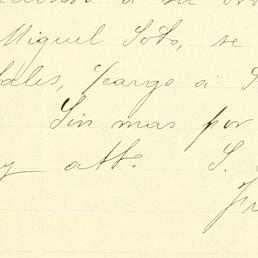 a su
Miguel Soto, se
ales, y cargo a
Sin mas por
y att. S.